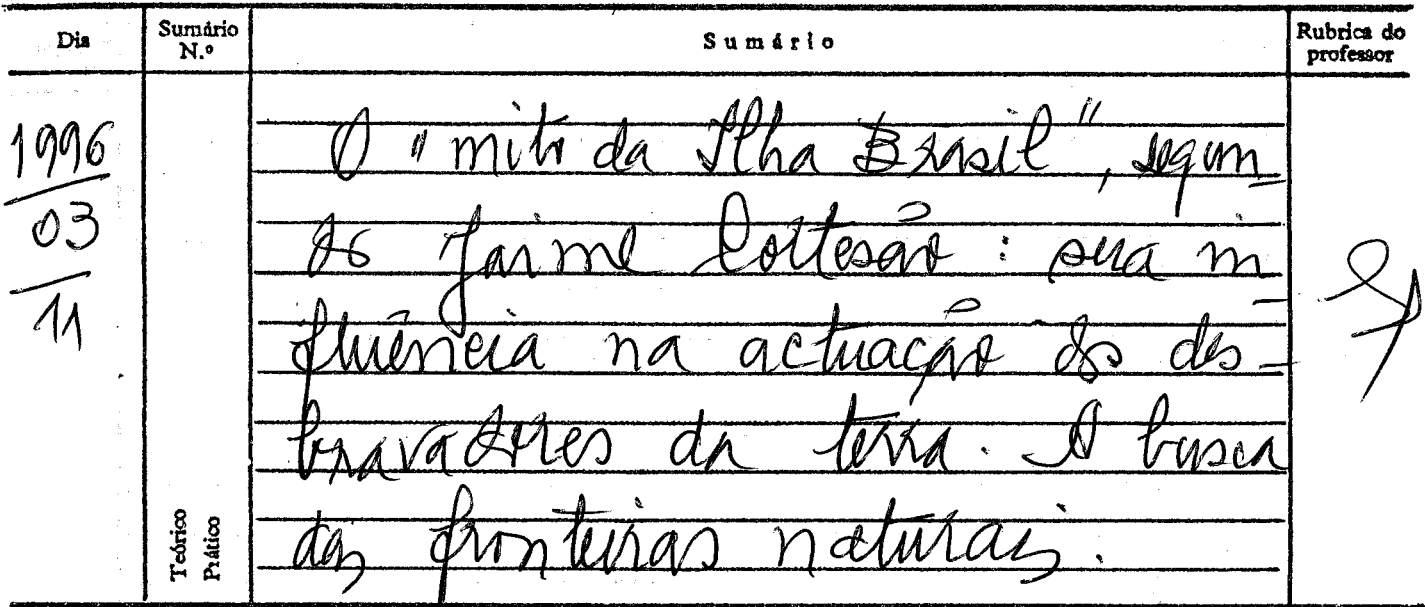 Dia
Sumário
N.º
Sumário
Rubrica do
professor
1996
03
11
O "mito da Ilha Brasil", segun-
do Jaime Cortesão: sua in-
fluência na actuação dos des-
bravadores da terra. A busca
das fronteiras naturais.
Teórico
Prático